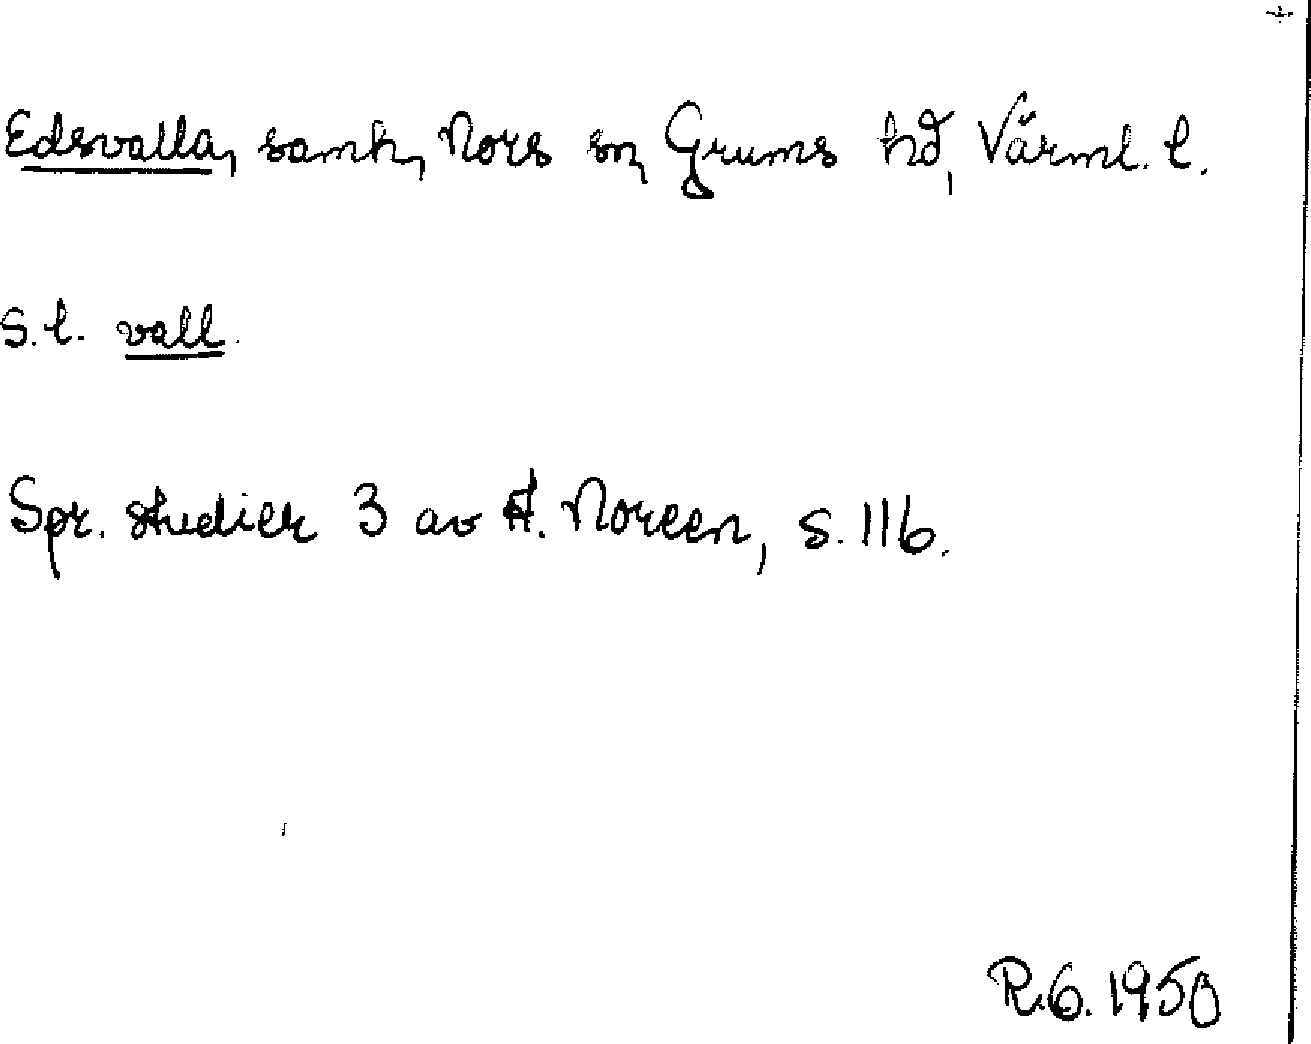 Edsvalla, samh, Nors sn, Grums hd, Värml. l.
S.l. vall.
Spr. studier 3 av A. Noreen, s. 116.
R.G. 1950